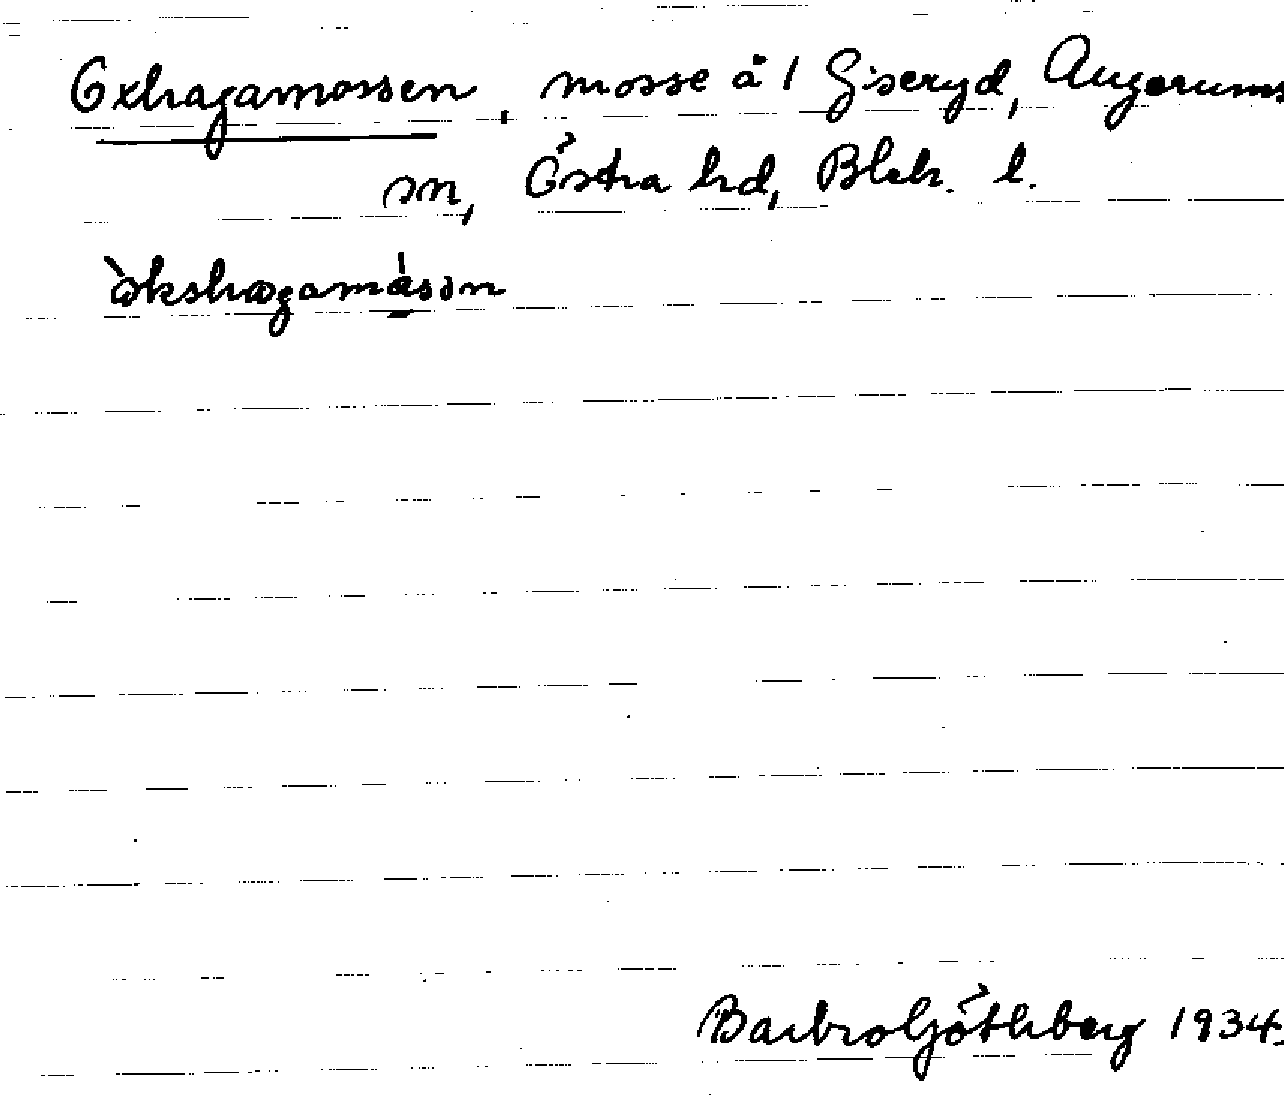 Oxhagamossen, mosse å 1 Giseryd, Augerums
sn, Östra hd, Blek. l.
Barbro Göthberg 1934.